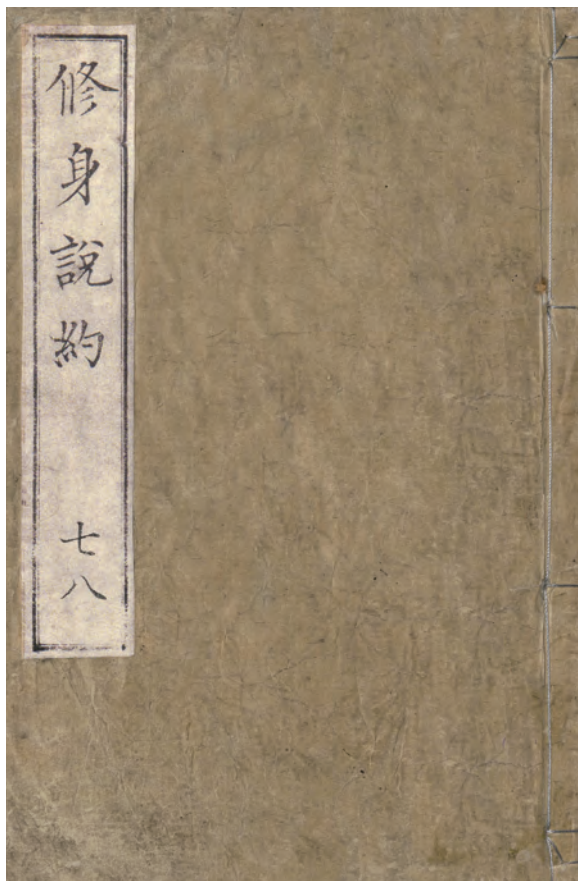 修身說約 七八